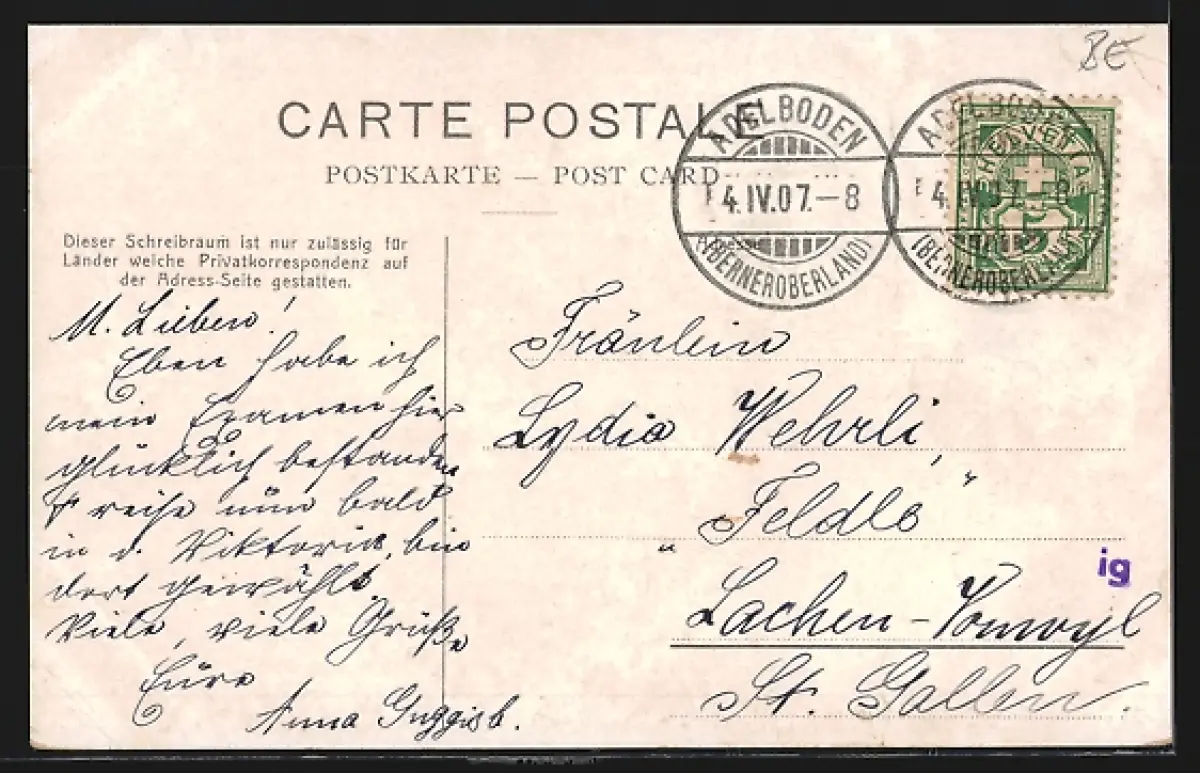 BE
CARTE POSTALE
POSTKARTE — POST CARD
ADELBODEN
4.IV.07.–8
(BERNEROBERLAND)
ADELBODEN
4.IV.07.–8
(BERNEROBERLAND)
HELVETIA
5
Dieser Schreibraum ist nur zulässig für
Länder welche Privatkorrespondenz auf
der Adress-Seite gestatten.
M. Lieben!
Eben habe ich
mein Examen hier
glücklich bestanden
& reise nun bald
in d. Viktoria, bin
dort gewählt
Viele, viele Grüße
Eure
Anna
Fräulein
Lydia Wehrli,
"Feldli"
Lachen-Vonwyl
St. Gallen.
ig